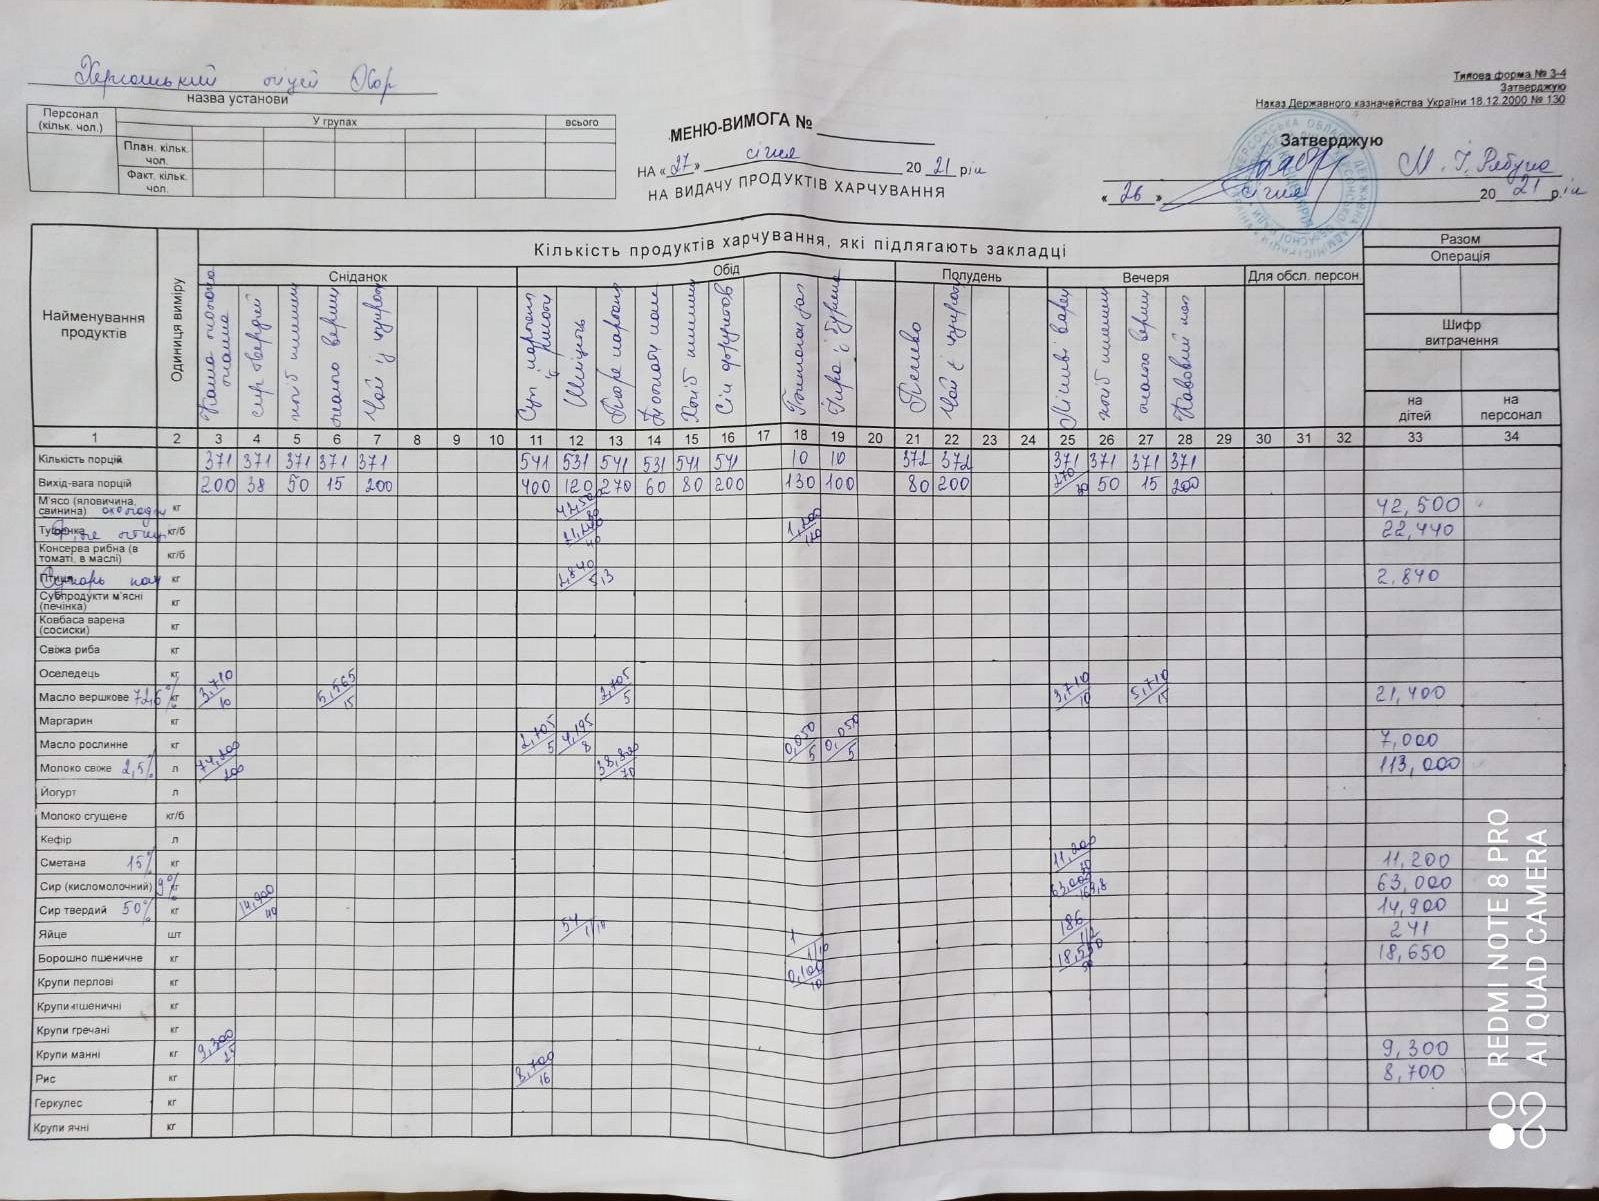 Херсонський ліцей ХОР
назва установи
Типова форма № З-4
Затверджую
Наказ Державного казначейства України 18.12.2000 № 130
Персонал (кільк. чол.)
У групах
всього
План. кільк. чол.
Факт. кільк. чол.
МЕНЮ-ВИМОГА №
НА «27» січня 2021 рік
НА ВИДАЧУ ПРОДУКТІВ ХАРЧУВАННЯ
Затверджую
М. І. Рябуха
«26» січня 2021 р.
Найменування продуктів
Одиниця виміру
Кількість продуктів харчування, які підлягають закладці
Разом
Операція
Шифр витрачення
на дітей
на персонал
Сніданок
Обід
Полудень
Вечеря
Для обсл. персон.
Каша молочна манна
сир твердий
хліб пшенич
масло верш
Чай з цукром
Суп картоп з рисом
Шніцель
Пюре картопл
Хліб пшенич
Сік фруктов
Печиво
Чай з цукром
Ліниві варен
хліб пшенич
масло верш
1 2 3 4 5 6 7 8 9 10 11 12 13 14 15 16 17 18 19 20 21 22 23 24 25 26 27 28 29 30 31 32 33 34
Кількість порцій 371 371 371 371 371 541 531 541 531 541 541 10 10 372 372 371 371 371 371
Вихід-вага порцій 200 38 50 15 200 400 120 270 60 80 200 130 100 80 200 50 15 200
М'ясо (яловичина, свинина) кг 42,500
Тушонка кг/б 22,440
Консерва рибна (в томаті, в маслі) кг/б
Птиця кг 2,840 5,3 2,840
Субпродукти м'ясні (печінка) кг
Ковбаса варена (сосиски) кг
Свіжа риба кг
Оселедець кг
Масло вершкове 72,5% кг 3,710 10 5,565 15 2,705 5 3,710 10 5,710 15 21,400
Маргарин кг
Масло рослинне кг 2,705 5 4,195 8 0,050 5 0,050 5 7,000
Молоко свіже 2,5% л 74,200 200 38,800 70 113,000
Йогурт л
Молоко сгущене кг/б
Кефір л
Сметана 15% кг 11,200 11,200
Сир (кисломолочний) 9% кг 63,000 169,8 63,000
Сир твердий 50% кг 14,900 40 14,900
Яйце шт 54 1/10 1 1/10 186 1/2 241
Борошно пшеничне кг 0,100 10 18,550 50 18,650
Крупи перлові кг
Крупи пшеничні кг
Крупи гречані кг
Крупи манні кг 9,300 25 9,300
Рис кг 8,700 16 8,700
Геркулес кг
Крупи ячні кг
REDMI NOTE 8 PRO
AI QUAD CAMERA